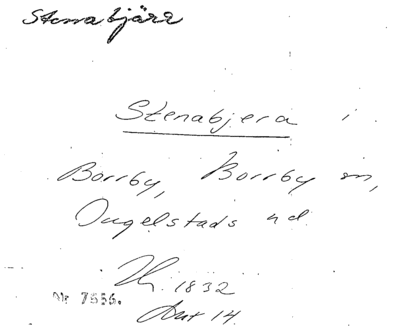 Stenabjärr
Stenabjera i
Borrby, Borrby sn,
Ingelstads hd.
1832
Nr 7556.
Akt 14